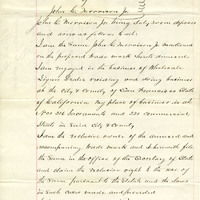 John C. Morrison Jr.
John C. Morrison Jr. being duly sworn deposes
and says as follows to wit:
I am the same John C. Morrison Jr. mentioned
in the proposed trade mark
I am engaged in the business of Wholesale
Liquor Dealer residing and doing business
at the City & County of San Francisco State
of California. My place of business is at
Nos and 221 Commercial
Street in said City & County
I am the exclusive owner of the annexed and
accompanying trade mark and I herewith file
the same in the Office of the Secretary of State
and claim the exclusive right to the use of
the same pursuant to the Statute and the laws
in such cases made and provided